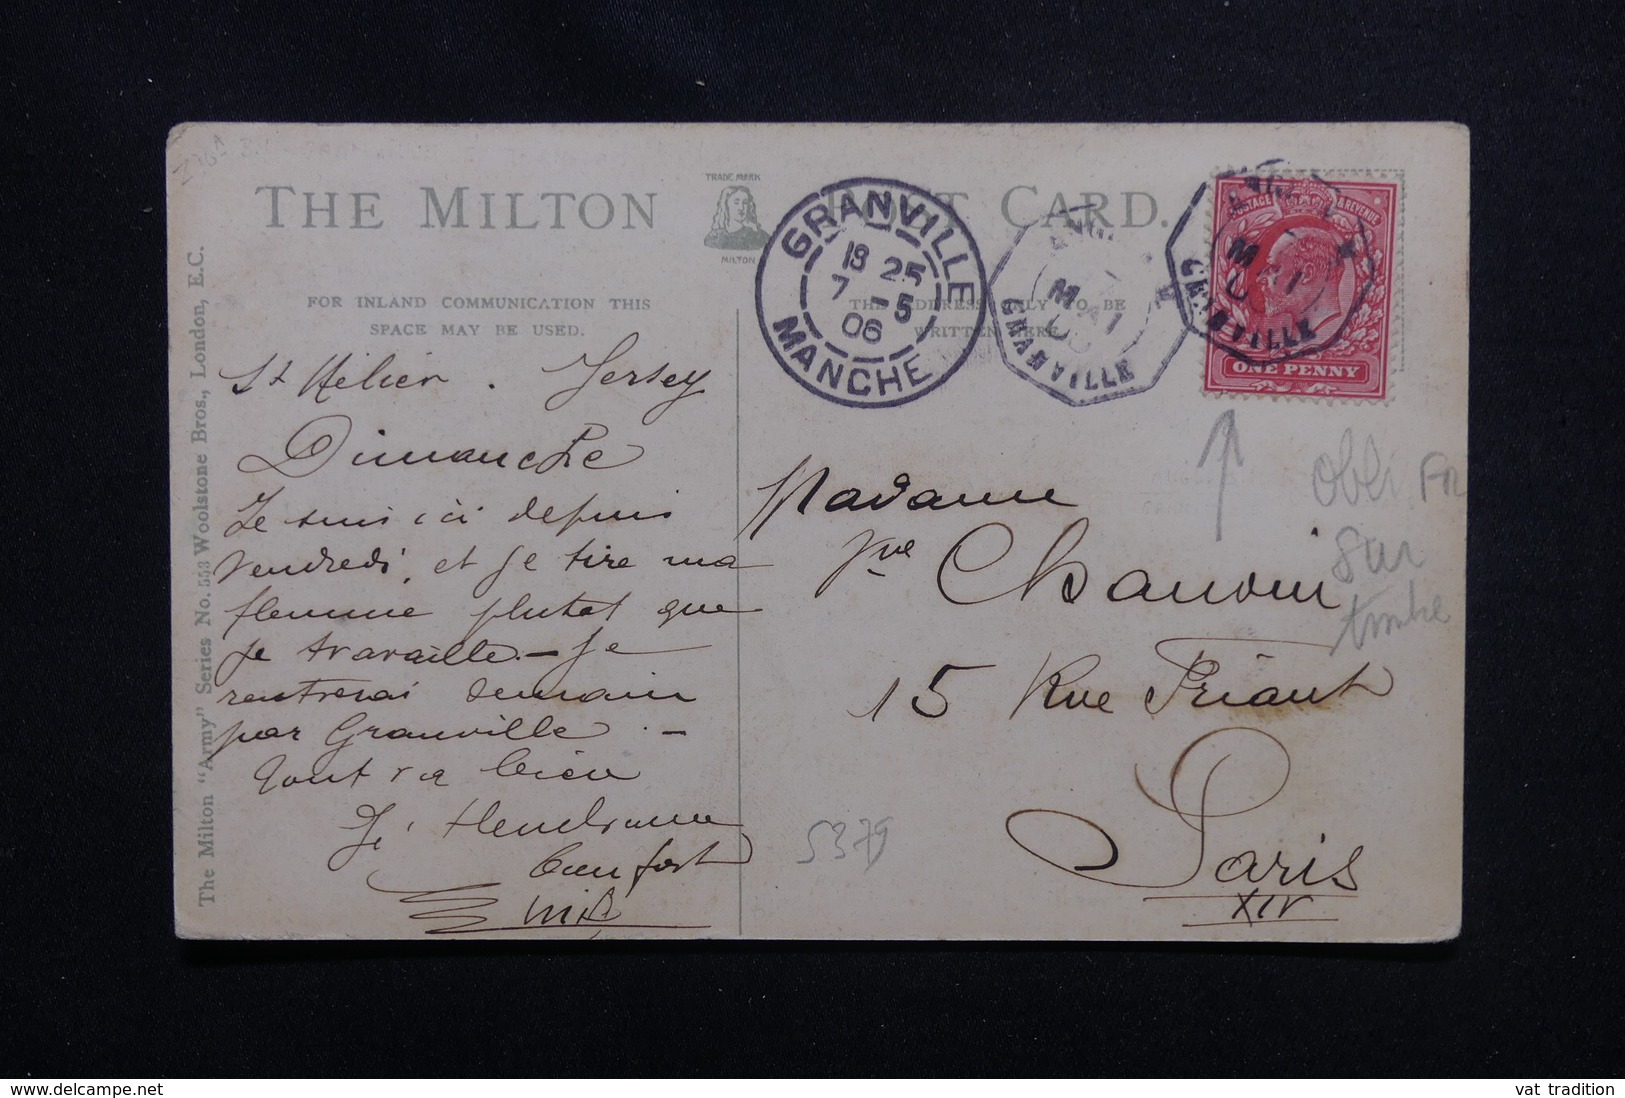 THE MILTON POST CARD.
TRADE MARK
MILTON
FOR INLAND COMMUNICATION THIS
SPACE MAY BE USED.
THE ADDRESS ONLY TO BE
WRITTEN HERE.
The Milton "Army" Series No. 553 Woolstone Bros., London, E.C.
GRANVILLE
18 25
7 - 5
06
MANCHE
MAI
GRANVILLE
MAI
GRANVILLE
POSTAGE & REVENUE
ONE PENNY
St Hélier. Jersey
Dimanche
Je suis ici depuis
vendredi, et je tire ma
flemme plutot que
je travaille. - Je
rentrerai demain
par Granville. -
Tout va bien
Je t'embrasse
bien fort
Madame
Vve Chauvin
15 Rue Friant
Paris
XIV
obli Fr
sur
timbre
5379
delcampe.net
vat tradition